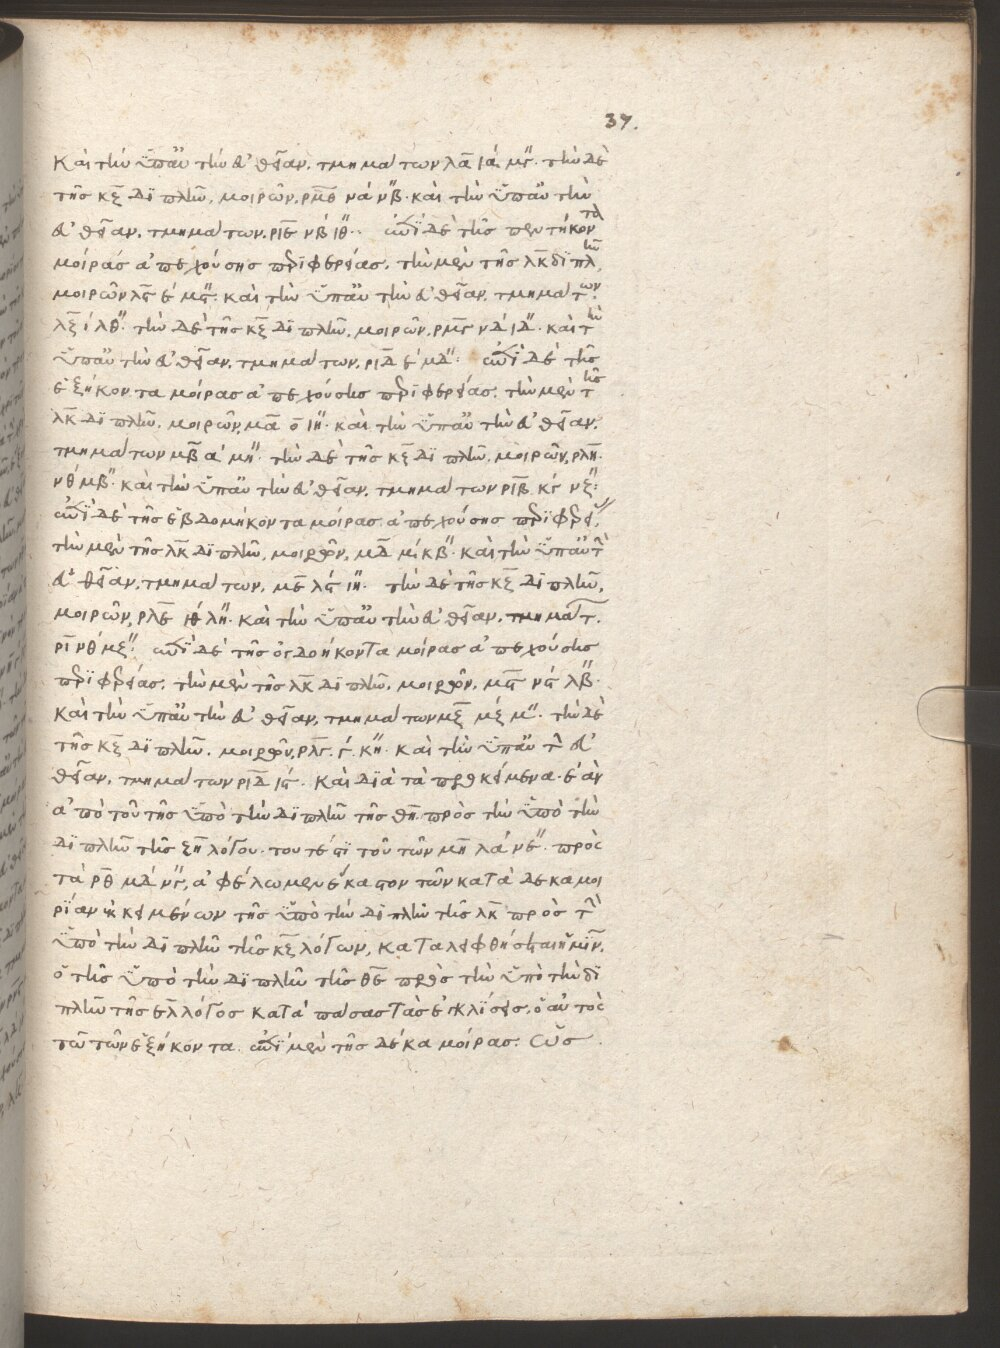 37.
Καὶ τὴν ὑπ' αὐτὴν εὐθεῖαν, τμημάτων λ̄ᾱ ιά μς̋. τὴν δὲ
τῆς κ̄ξ̄ διπλῆν, μοιρῶν, ρ̄μ̄ε̄ νά ν̋β. καὶ τὴν ὑπ' αὐτὴν
εὐθεῖαν, τμημάτων, ρ̄ῑε̄ νβ́ ιθ̋. ἐπὶ δὲ τῆς πεντήκοντα
μοίρας ἀπεχούσης περιφερείας. τὴν μὲν τῆς λ̄κ̄ διπλῆν
μοιρῶν λ̄ς̄ έ μς̋. καὶ τὴν ὑπ' αὐτὴν εὐθεῖαν, τμημάτων.
λ̄ξ̄ ί λθ̋. τὴν δὲ τῆς κ̄ξ̄ διπλῆν, μοιρῶν, ρ̄μ̄ς̄ νδ́ ιδ̋. καὶ τὴν
ὑπ' αὐτὴν εὐθεῖαν, τμημάτων, ρ̄ῑδ̄ έ μδ̋: ἐπὶ δὲ τῆς
ἑξήκοντα μοίρας ἀπεχούσης περιφερείας. τὴν μὲν τῆς
λ̄κ̄ διπλῆν, μοιρῶν, μ̄ᾱ ō ιη̋. καὶ τὴν ὑπ' αὐτὴν εὐθεῖαν.
τμημάτων μ̄β̄ ά μη̋. τὴν δὲ τῆς κ̄ξ̄ διπλῆν, μοιρῶν, ρ̄λ̄η̄.
νθ́ μβ̋. καὶ τὴν ὑπ' αὐτὴν εὐθεῖαν, τμημάτων ρ̄ῑβ̄ κς́ νξ̋:
ἐπὶ δὲ τῆς ἑβδομήκοντα μοίρας ἀπεχούσης περιφερείας,
τὴν μὲν τῆς λ̄κ̄ διπλῆν, μοιρῶν, μ̄δ̄ μ́ κβ̋. καὶ τὴν ὑπ' αὐτὴν
εὐθεῖαν, τμημάτων, μ̄ε̄ λς́ ιη̋. τὴν δὲ τῆς κ̄ξ̄ διπλῆν,
μοιρῶν, ρ̄λ̄ε̄ ιθ́ λη̋. καὶ τὴν ὑπ' αὐτὴν εὐθεῖαν, τμημάτ.
ρ̄ῑ νθ́ μξ̋: ἐπὶ δὲ τῆς ὀγδοήκοντα μοίρας ἀπεχούσης
περιφερείας, τὴν μὲν τῆς λ̄κ̄ διπλῆν, μοιρῶν, μ̄ς̄ νς́ λβ̋.
καὶ τὴν ὑπ' αὐτὴν εὐθεῖαν, τμημάτων μ̄ξ̄ μέ μ̋. τὴν δὲ
τῆς κ̄ξ̄ διπλῆν. μοιρῶν, ρ̄λ̄γ̄. γ́. κη̋. καὶ τὴν ὑπ' αὐτὴν εὐ
θεῖαν, τμημάτων ρ̄ῑδ̄ ις́. καὶ διὰ τὰ προκείμενα. ἐὰν
ἀπὸ τοῦ τῆς ὑπὸ τὴν διπλῆν τῆς θ̄η̄. πρὸς τὴν ὑπὸ τὴν
διπλῆν τῆς ξ̄η̄ λόγου. τουτέστι τοῦ τῶν μ̄η̄ λά νε̋. πρὸς
τὰ ρ̄θ̄ μδ́ νγ̋, ἀφέλωμεν ἕκαστον τῶν κατὰ δεκαμοι
ρίαν ἐκκειμένων τῆς ὑπὸ τὴν διπλῆν τῆς λ̄κ̄ πρὸς τὴν
ὑπὸ τὴν διπλῆν τῆς κ̄ξ̄ λόγων, καταλειφθήσεται ἡμῖν.
ὁ τῆς ὑπὸ τὴν διπλῆν τῆς θ̄ε̄ πρὸς τὴν ὑπὸ τὴν δι
πλῆν τῆς ε̄λ̄ λόγος κατὰ πάσας τὰς ἐκλίσεις. ὁ αὐτὸς
τῷ τῶν ἑξήκοντα. ἐπὶ μὲν τῆς δέκα μοίρας.